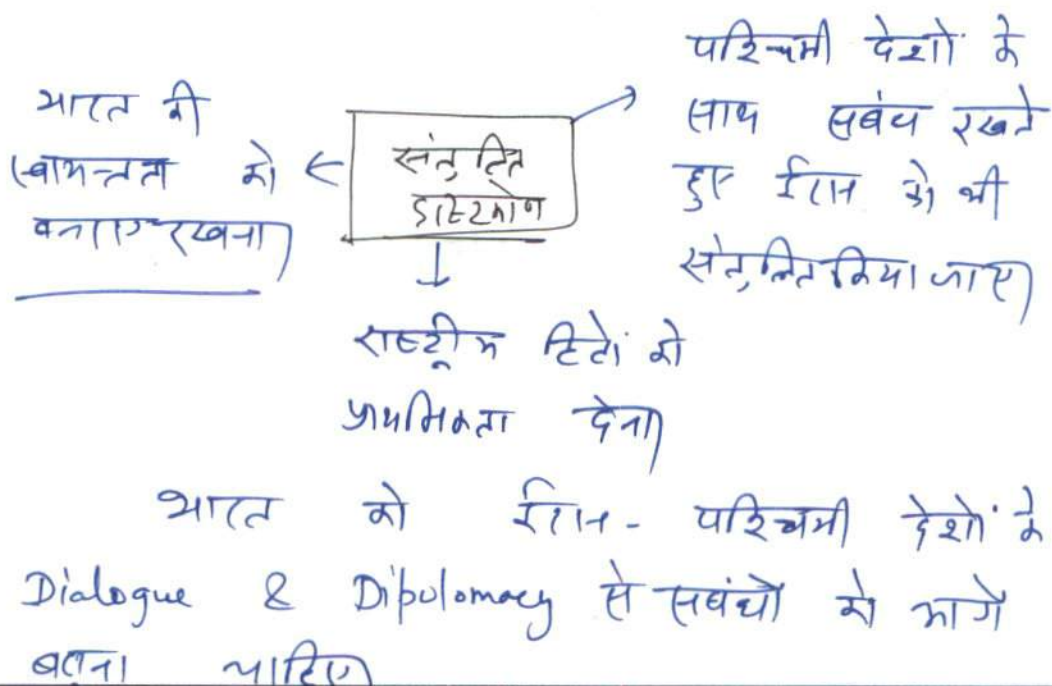 भारत की
स्वायत्तता को
बनाए रखना
संतुलित
दृष्टिकोण
पश्चिमी देशों के
साथ सबंध रखते
हुए ईरान को भी
संतुलित किया जाए
राष्ट्रीय हितों को
प्राथमिकता देना
भारत को ईरान - पश्चिमी देशों के
Dialogue & Dipolomacy से सबंधों को आगे
बढ़ाना चाहिए